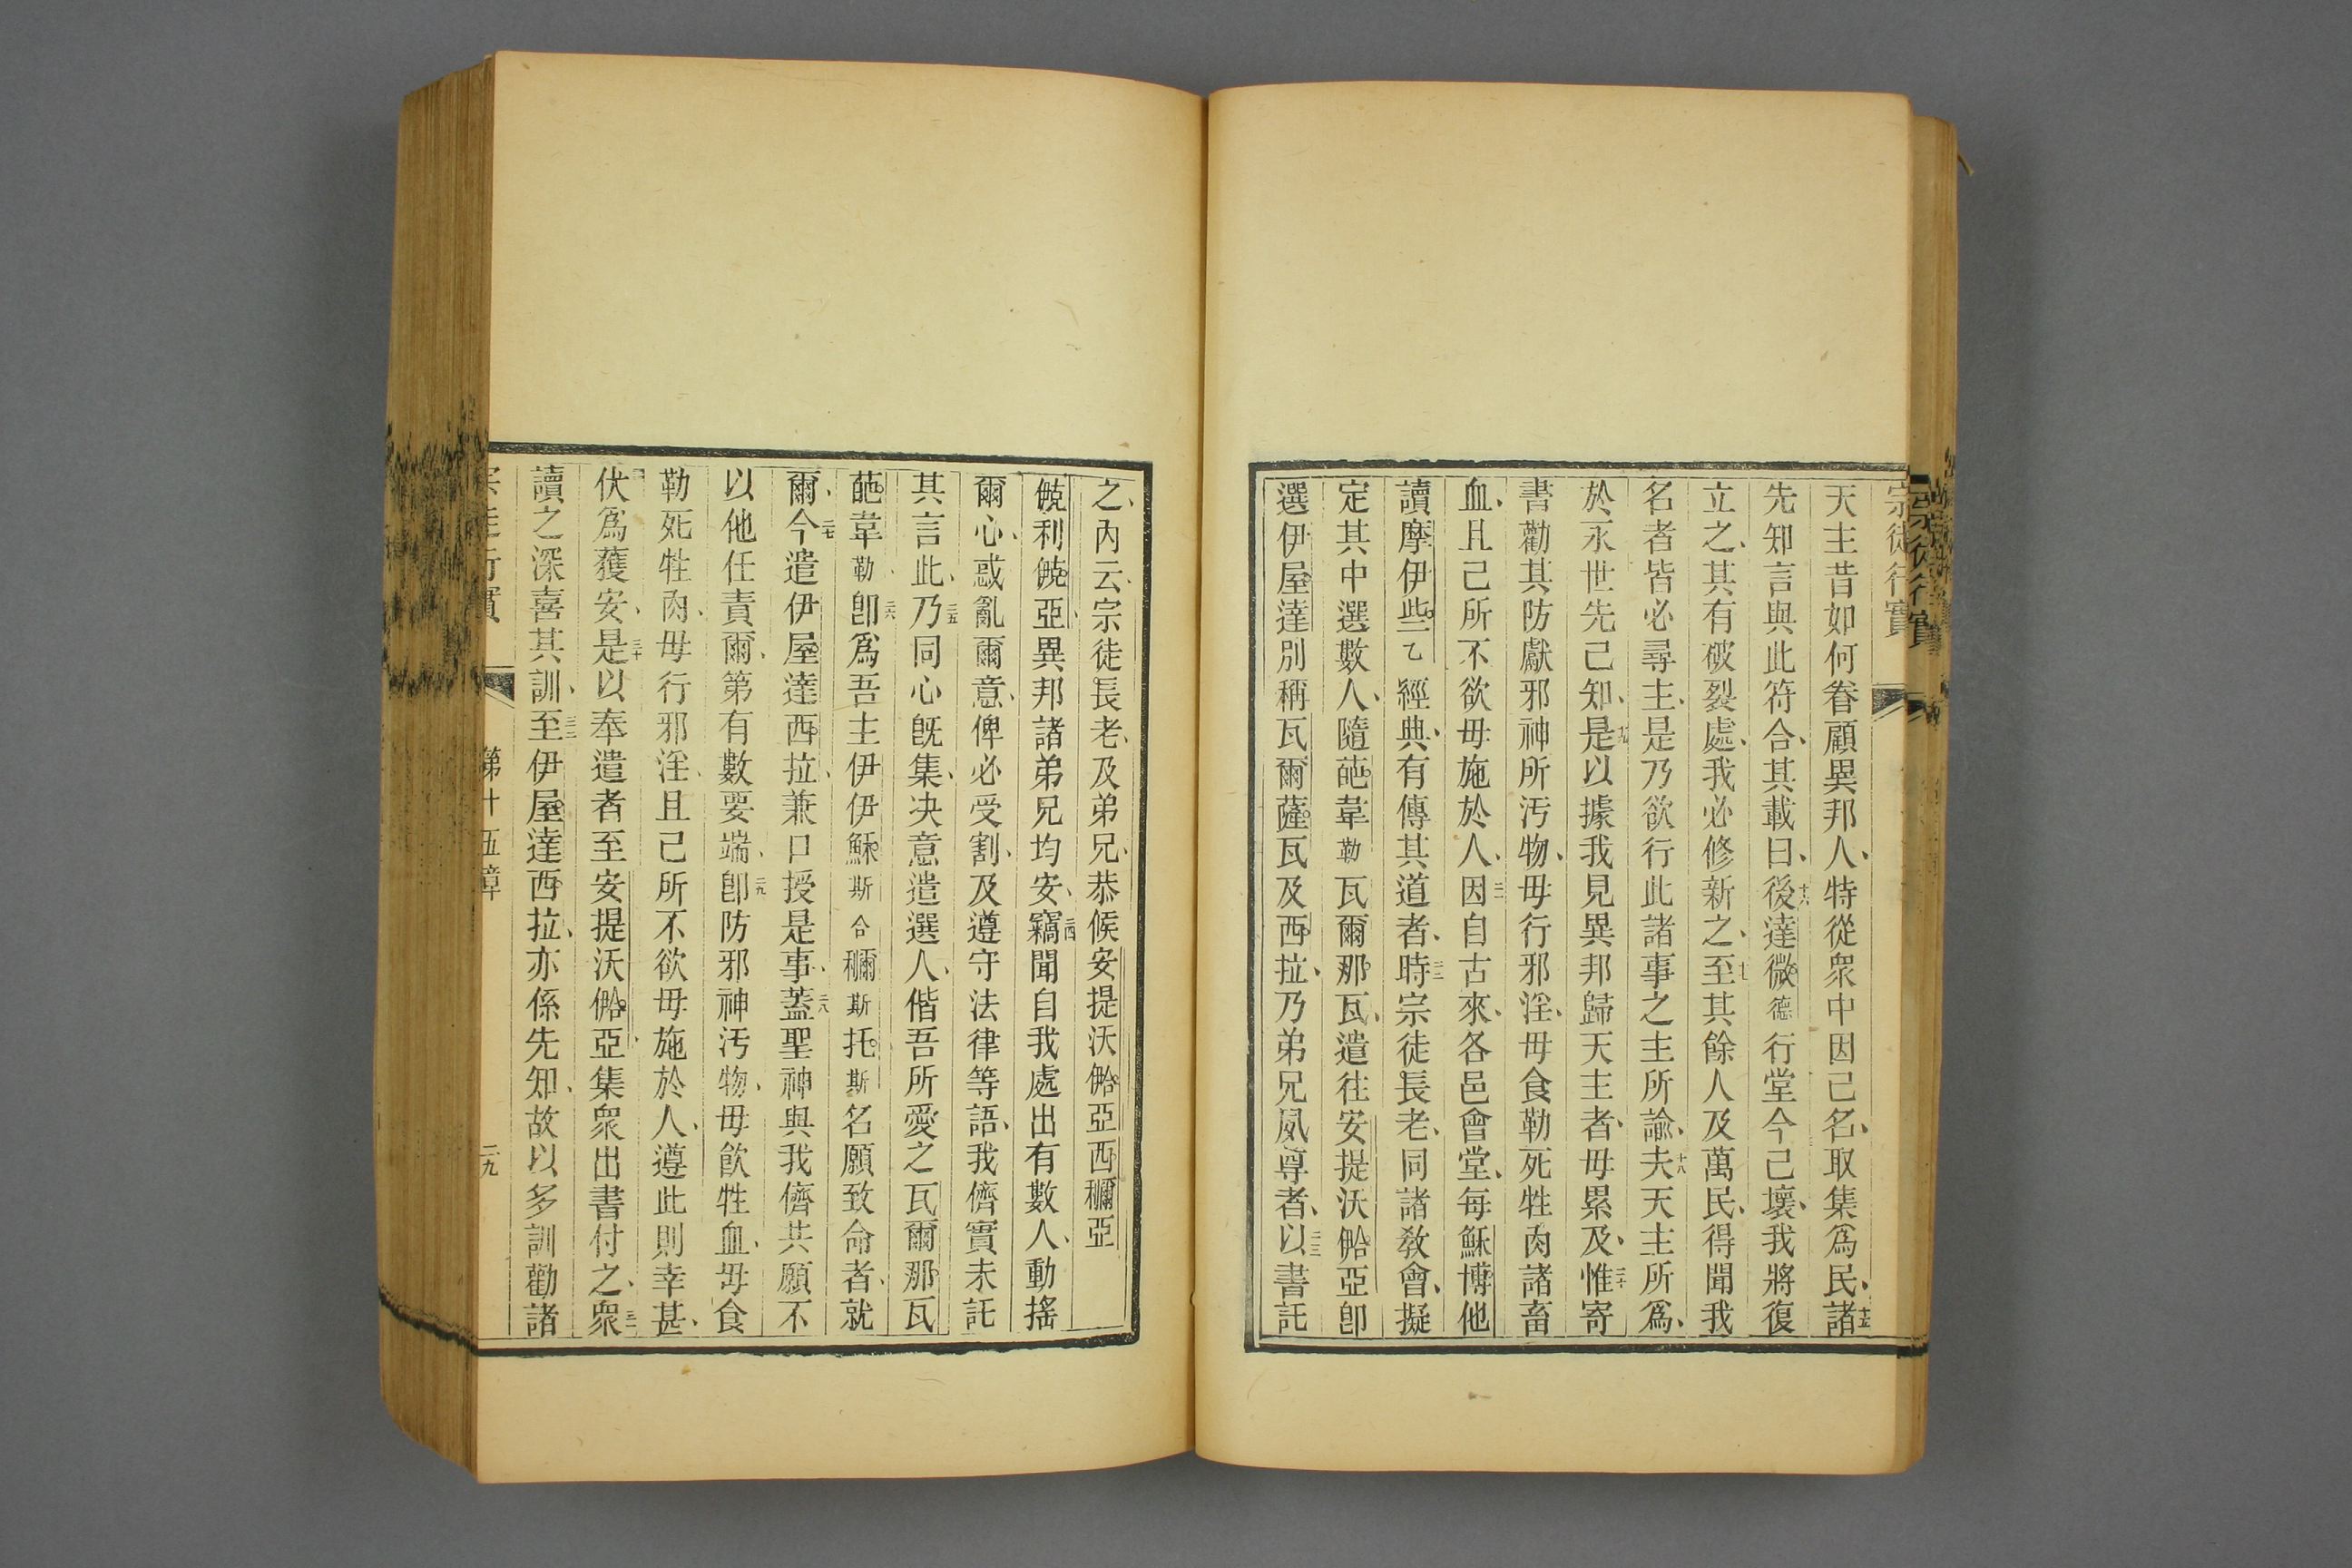 宗徒行實
天主昔如何眷顧異邦人、特從衆中因己名、取集爲民、十五諸
先知言與此符合、其載曰、十六後達微德行堂今己壞、我將復
立之、其有破裂處、我必修新之、十七至其餘人及萬民、得聞我
名者皆必尋主、是乃欲行此諸事之主所諭、十八夫天主所爲、
於永世先己知、十九是以據我見異邦歸天主者、毋累及、二十惟寄
書勸其防獻邪神所汚物、毋行邪淫、毋食勒死牲肉諸畜
血、且己所不欲毋施於人、二一因自古來、各邑會堂、每穌博他
讀摩伊些乙經典、有傳其道者、二二時宗徒長老、同諸教會、擬
定其中選數人、隨葩韋勒瓦爾那瓦、遣往安提沃餄亞卽
選伊屋達別稱瓦爾薩瓦及西拉、乃弟兄夙尊者、二三以書託
之、內云、宗徒長老、及弟兄、恭候安提沃餄亞西穪亞
利亞、異邦諸弟兄均安、二四竊聞自我處出有數人、動搖
爾心、惑亂爾意、俾必受割、及遵守法律等語、我儕實未託
其言此、二五乃同心旣集、决意遣選人、偕吾所愛之瓦爾那瓦
葩韋勒二六卽爲吾主伊伊穌斯合穪斯托斯名願致命者、就
爾、二七今遣伊屋達西拉、兼口授是事、二八蓋聖神與我儕共願不
以他任責爾、第有數要端、二九卽防邪神汚物、毋飲牲血、毋食
勒死牲肉、毋行邪淫、且己所不欲毋施於人、遵此則幸甚、
伏爲獲安、三十是以奉遣者至安提沃餄亞、集衆出書付之、三一衆
讀之深喜其訓、三二至伊屋達西拉、亦係先知、故以多訓勸諸
宗徒行實 第十五章 二九